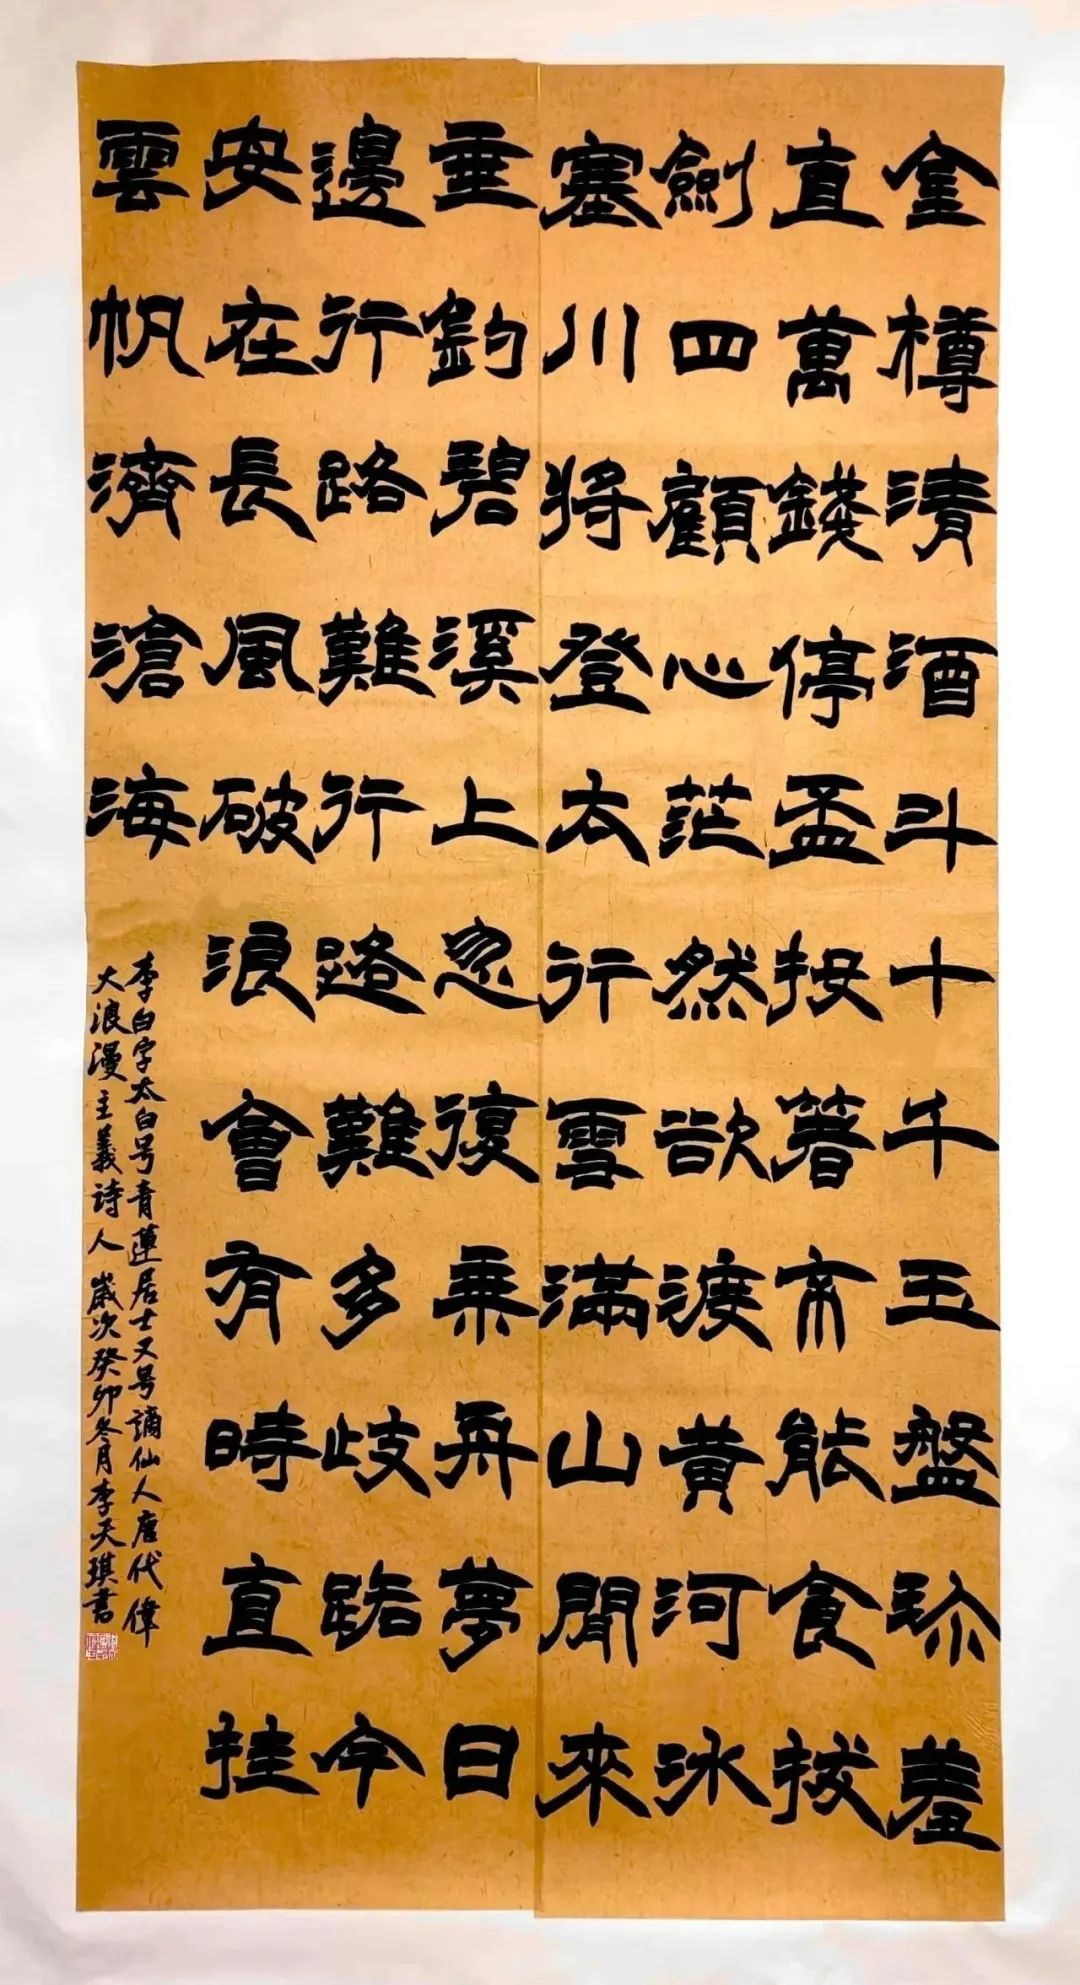 金樽清酒斗十千玉盤珎羞
直萬錢停盃投箸不能食拔
劍四顧心茫然欲渡黃河冰
塞川將登太行雪滿山閒來
垂釣碧溪上忽復乘舟夢日
邊行路難行路難多歧路今
安在長風破浪會有時直挂
雲帆濟滄海
李白字太白号青蓮居士又号謫仙人唐代偉
大浪漫主義诗人歲次癸卯冬月李天琪書